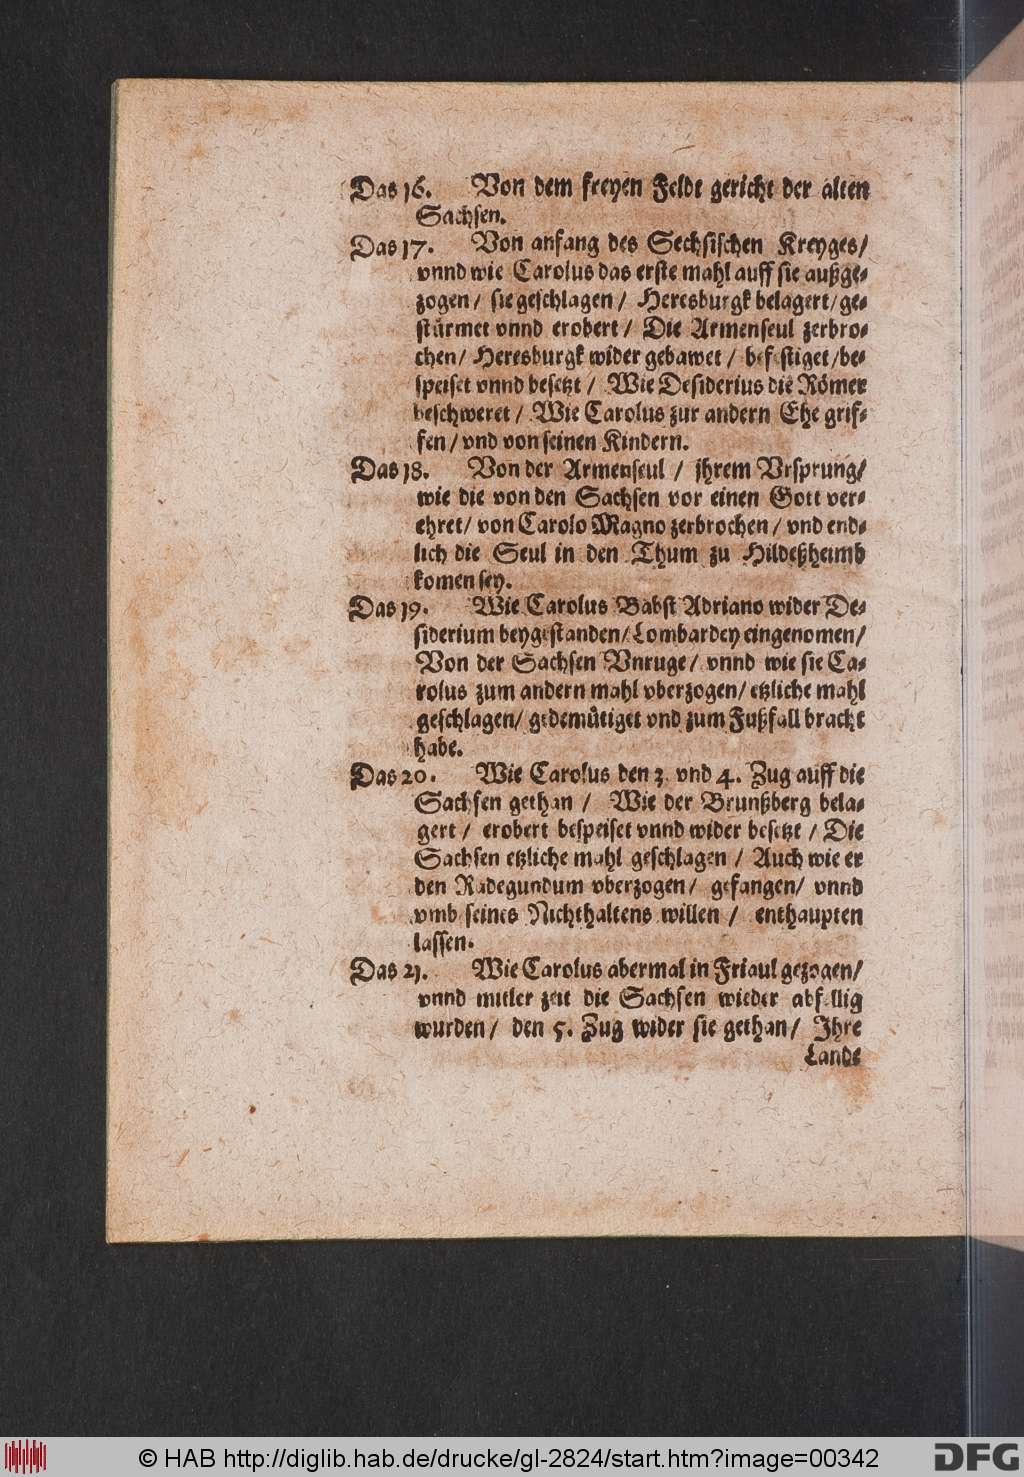 Das 16. Von dem freyen Feldt gericht der alten
Sachsen.
Das 17. Von anfang des Sechsischen Kreyges/
vnnd wie Carolus das erste mahl auff sie außge-
zogen / sie geschlagen / Heresburgk belagert / ge-
stürmet vnnd erobert / Die Armenseul zerbro-
chen / Heresburgk wider gebawet / befestiget / be-
speiset vnnd besetzt / Wie Desiderius die Römer
beschweret / Wie Carolus zur andern Ehe grif-
fen / vnd von seinen Kindern.
Das 18. Von der Armenseul / jhrem Vrsprung/
wie die von den Sachsen vor einen Gott ver-
ehret / von Carolo Magno zerbrochen / vnd end-
lich die Seul in den Thum zu Hildeßheimb
komen sey.
Das 19. Wie Carolus Babst Adriano wider De-
siderium beygestanden / Lombardey eingenomen /
Von der Sachsen Vnruge / vnnd wie sie Ca-
rolus zum andern mahl vberzogen / etzliche mahl
geschlagen / gedemütiget vnd zum Fußfall bracht
habe.
Das 20. Wie Carolus den 3. vnd 4. Zug auff die
Sachsen gethan / Wie der Brunßberg bela-
gert / erobert bespeiset vnnd wider besetzt / Die
Sachsen etzliche mahl geschlagen / Auch wie er
den Radegundum vberzogen / gefangen / vnnd
vmb seines Nichthaltens willen / enthaupten
lassen.
Das 21. Wie Carolus abermal in Friaul gezogen /
vnnd mitler zeit die Sachsen wieder abfellig
wurden / den 5. Zug wider sie gethan / Ihre
Lande
© HAB http://diglib.hab.de/drucke/gl-2824/start.htm?image=00342
DFG